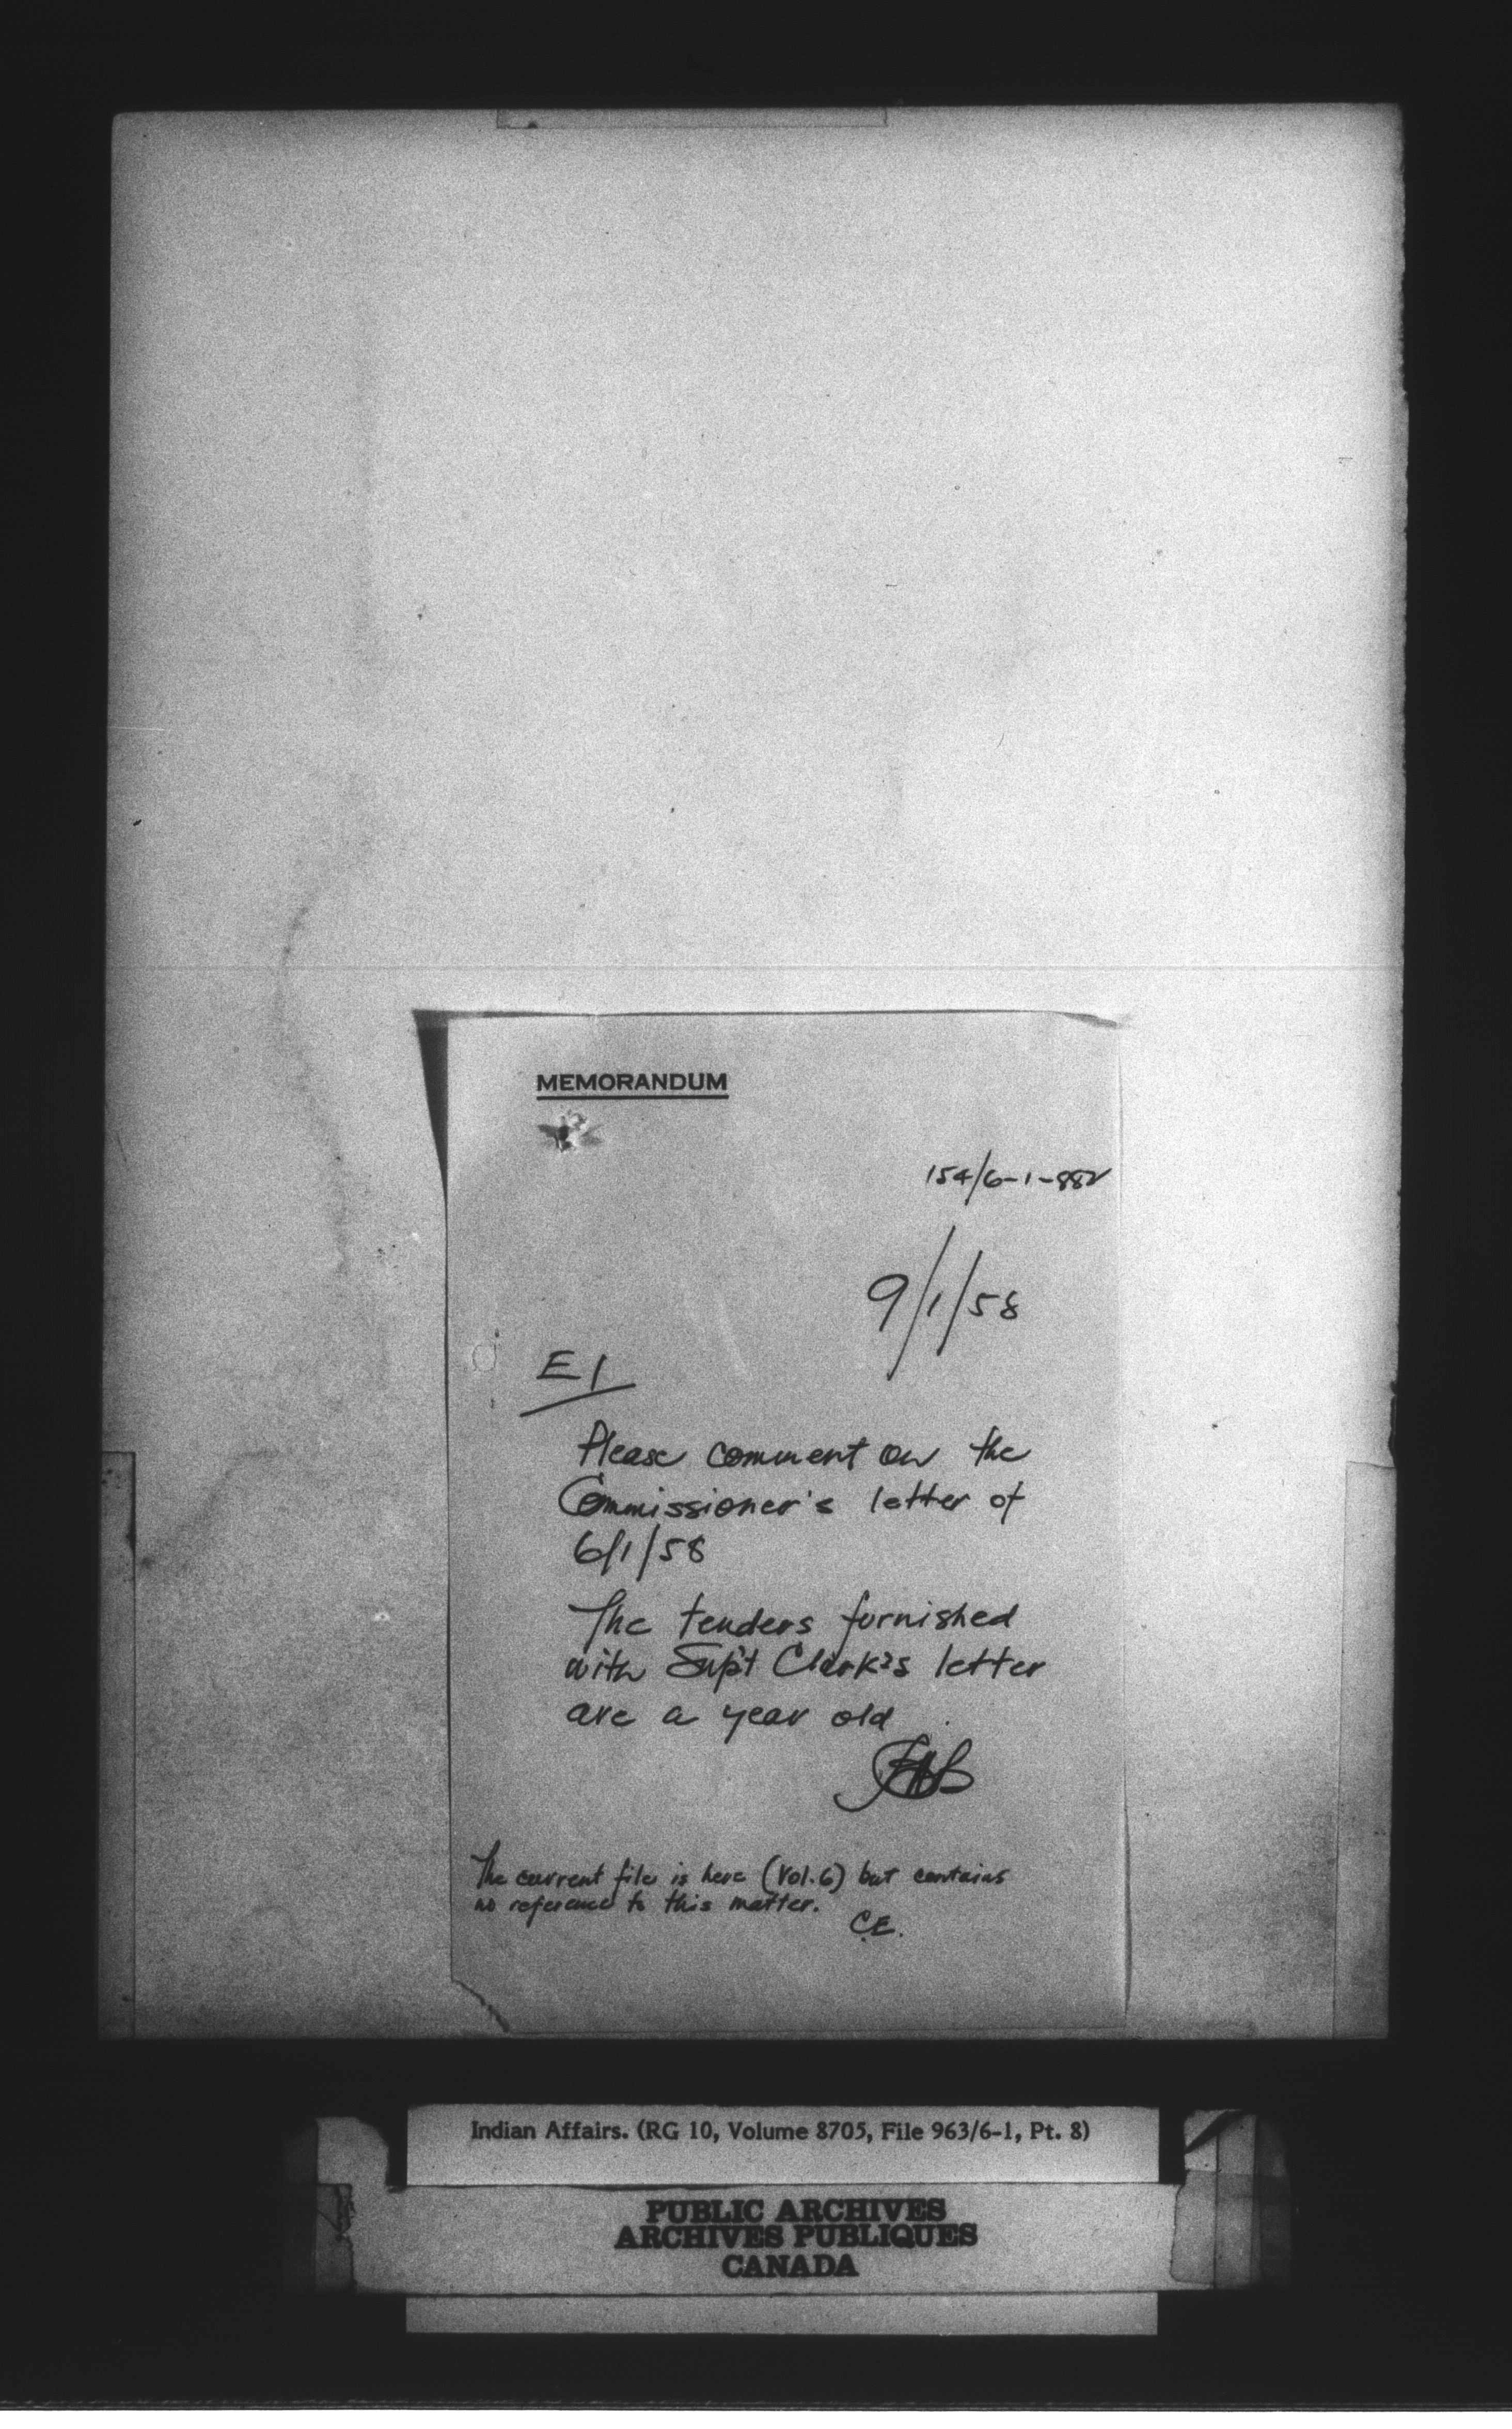 MEMORANDUM
154/6-1-882
9/1/58
E1
Please comment on the
Commissioner's letter of
6/1/58
The tenders furnished
with Sup't Clark's letter
are a year old
The current file is here (Vol. 6) but contains
no reference to this matter.
C.E.
Indian Affairs. (RG 10, Volume 8705, File 963/6-1, Pt. 8)
PUBLIC ARCHIVES
ARCHIVES PUBLIQUES
CANADA